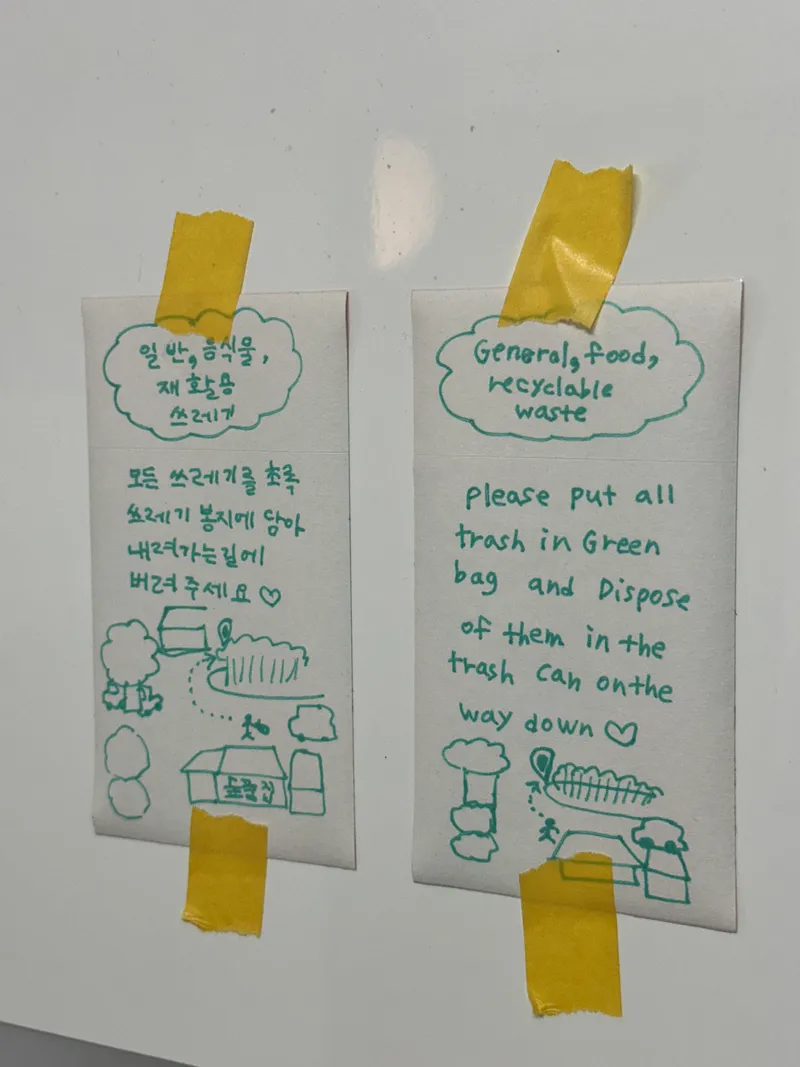 일반, 음식물,
재활용
쓰레기
모든 쓰레기를 초록
쓰레기 봉지에 담아
내려가는길에
버려 주세요♡
General, food,
recyclable
waste
please put all
trash in Green
bag and Dispose
of them in the
trash can on the
way down ♡